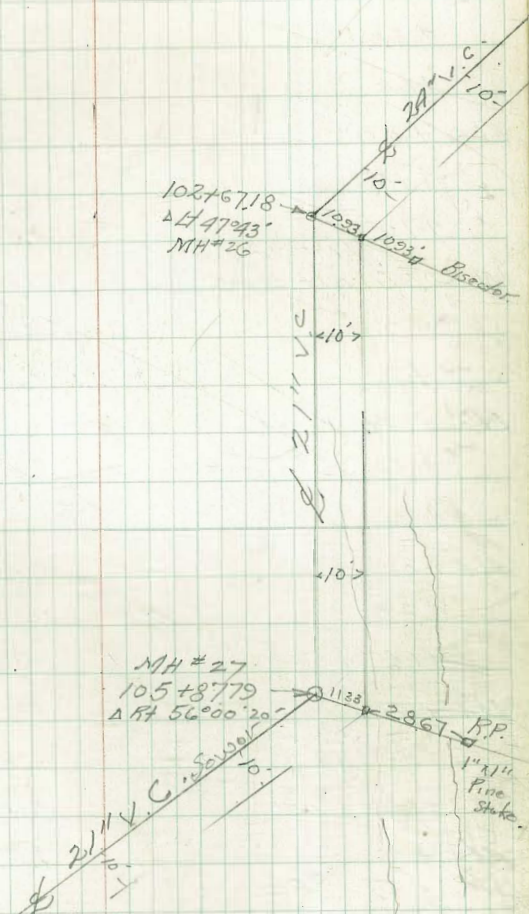 21" V.C.
10'
℄
10'
102+67.18
Δ Lt 47°43'
MH #26
10.93
10.93'
Bisector
10'
℄ 21" V.C.
10'
MH #27
105+87.79
Δ Rt 56°00'20"
11.33
28.67
R.P.
1"x1"
Pine
Stake.
℄ 21" V.C. Sewer
10'
10'